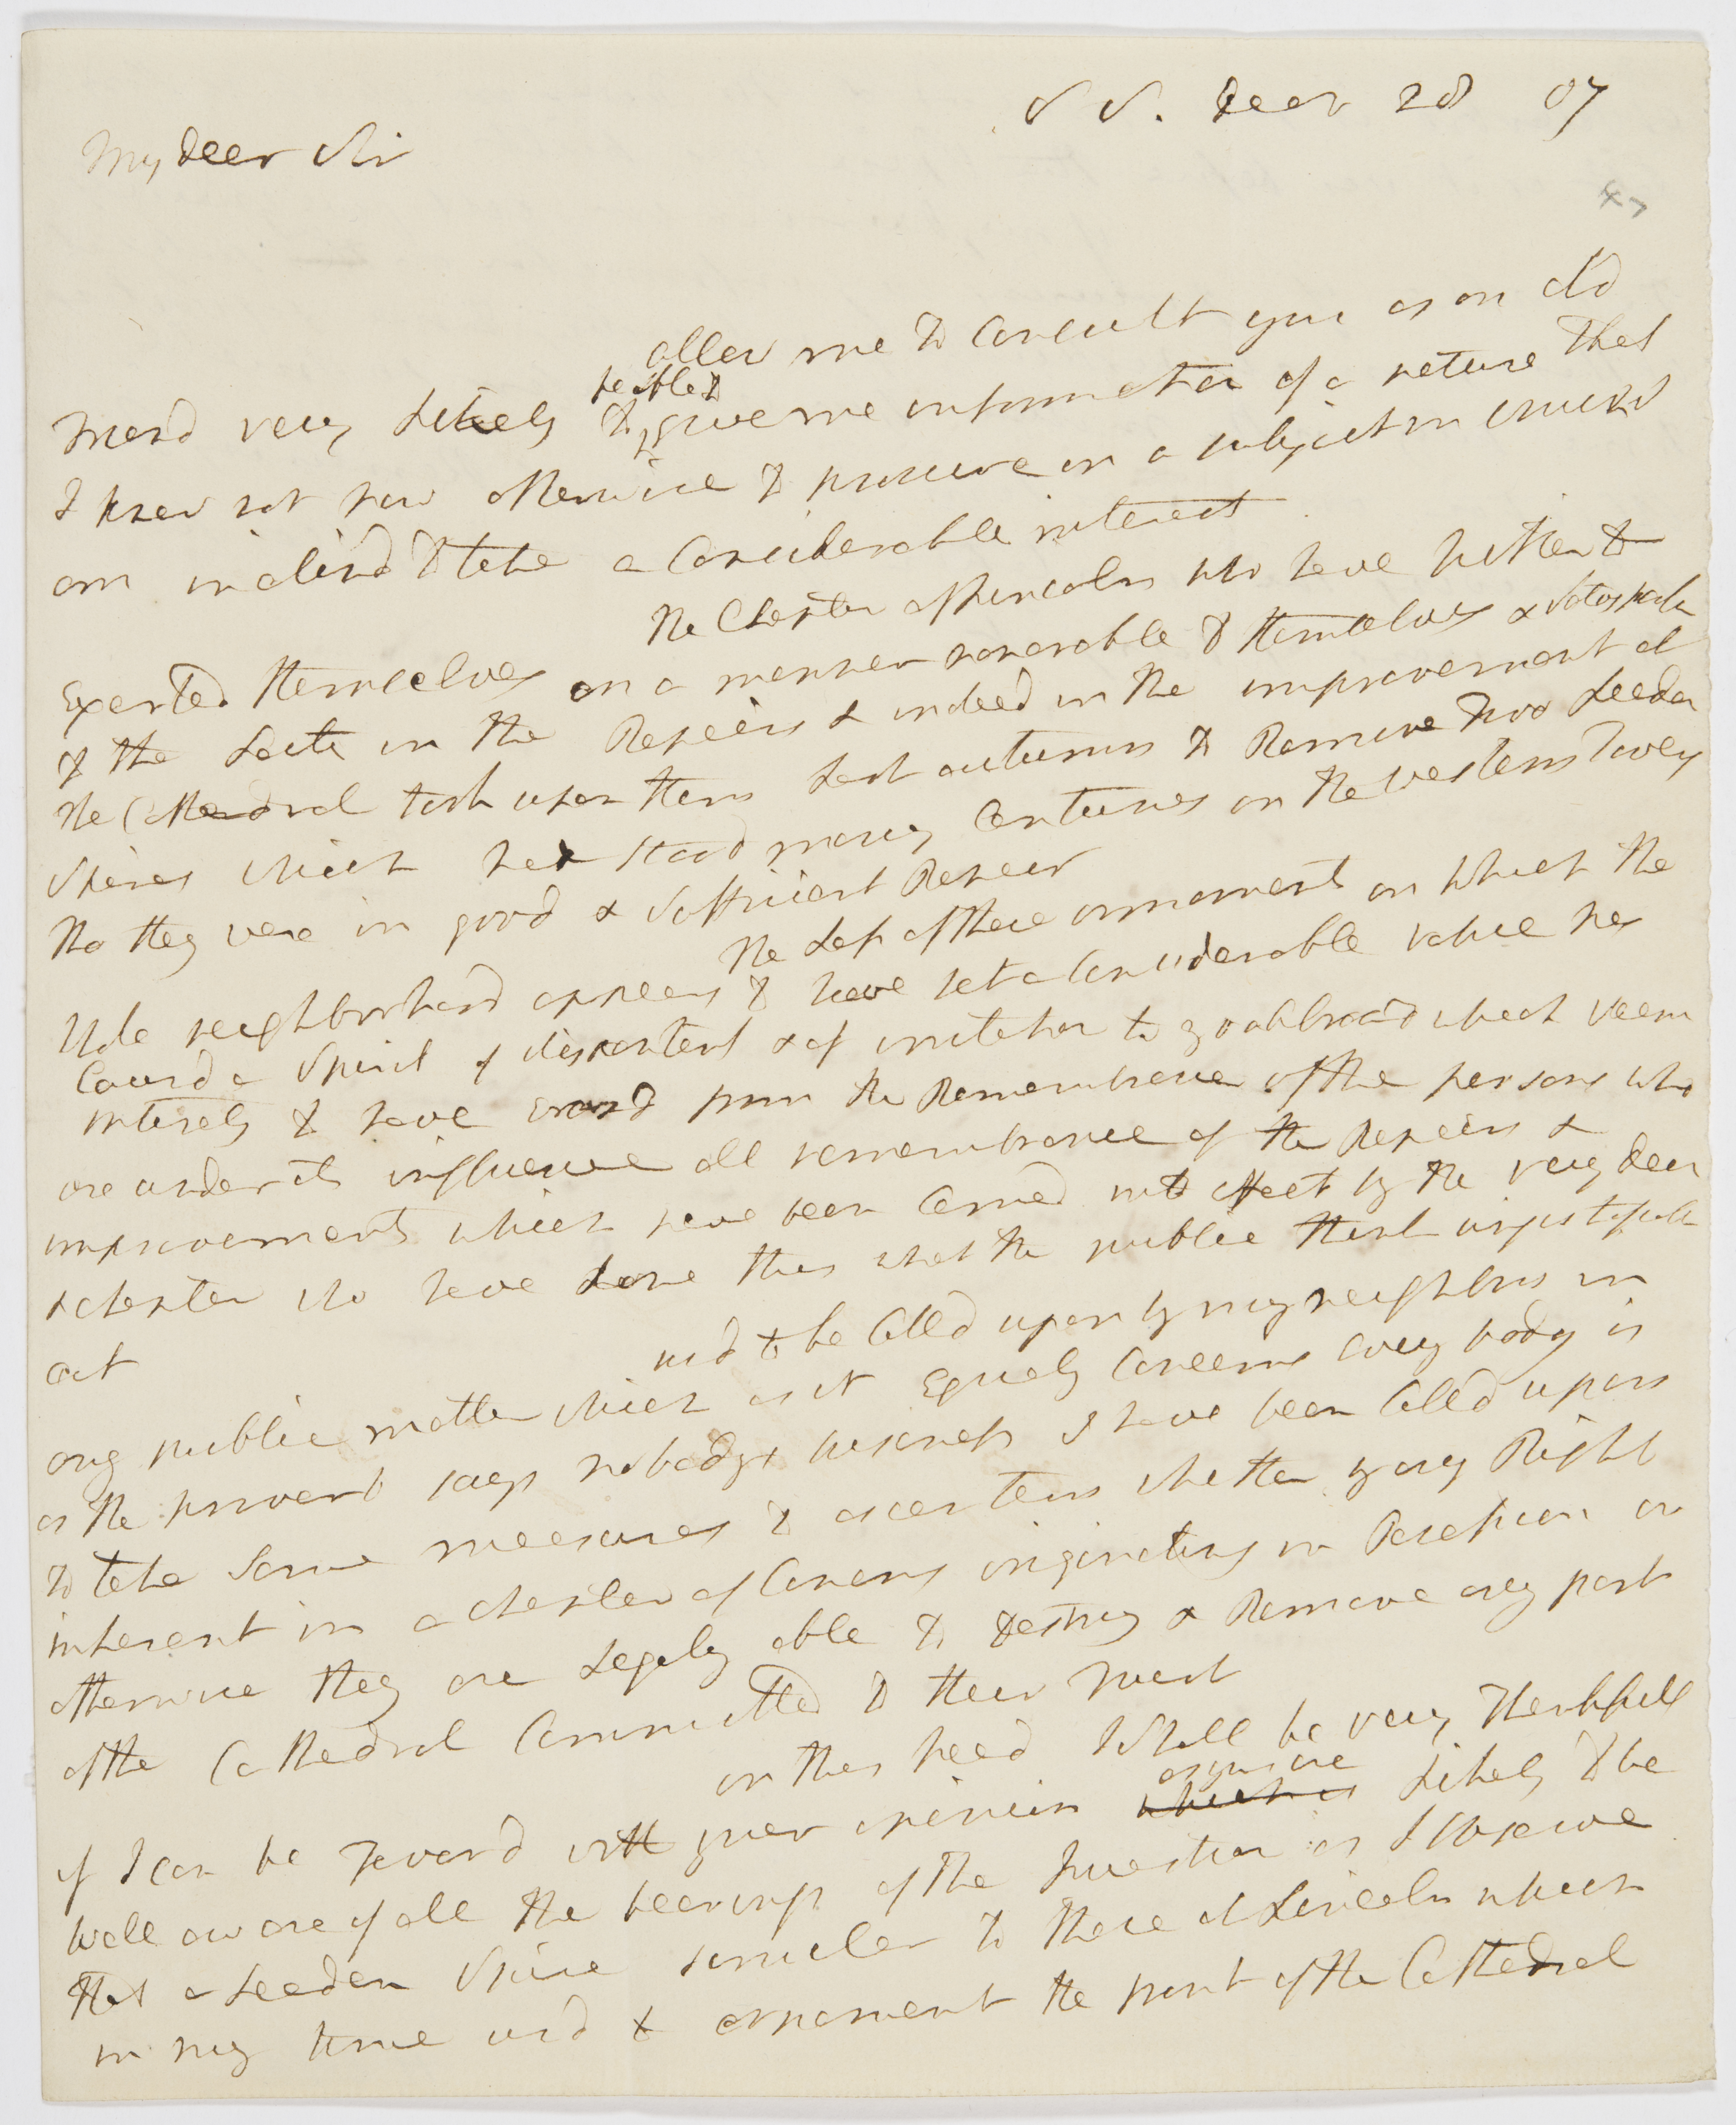 S S. Decr 28 07
My dear Sir
47
allow me to Consult you as an old
Friend very Likely to be able to give me information of a nature that
I know not how otherwise to procure on a subject in which I
am inclind to take a Considerable interest
The Chapter of Lincoln who have hitherto
Exerted themselves in a manner honorable to themselves &
to the Laity in the Repairs & indeed in the improvement of
the Cathedral took upon them Last autumn to Remove Two Leaden
Spires which had stood many Centuries on the western Towers
tho they were in good & Sufficient Repair
The Loss of these ornaments on which the
Whole neighborhood appears to have set a Considerable value has
Causd a Spirit of discontent & of irritation to go abroad which seems
intirely to have erasd from the Remembrance of the persons who
are under its influence all remembrance of the Repairs &
improvements which have been Carried into effect by the very Dean
& chapter who have done this what the public think
act
usd to be Calld upon by my neighbors in
any public matter which as it Equaly Concerns every body is
as the proverb says nobodys business I have been Calld upon
to take Some measures to ascertain whether by any Right
inherent in a chapter of Canons originating in Possession or
otherwise they are Legaly able to destroy & Remove any part
of the Cathedral Committed to their Trust
on this head I Shall be very Thankfull
if I can be Favord with your opinion as you are Likely to be
well aware of all the bearings of the Question as I Observe
that a Leaden Spire similar to those at Lincoln which
in my time usd to ornament the front of the Cathedral